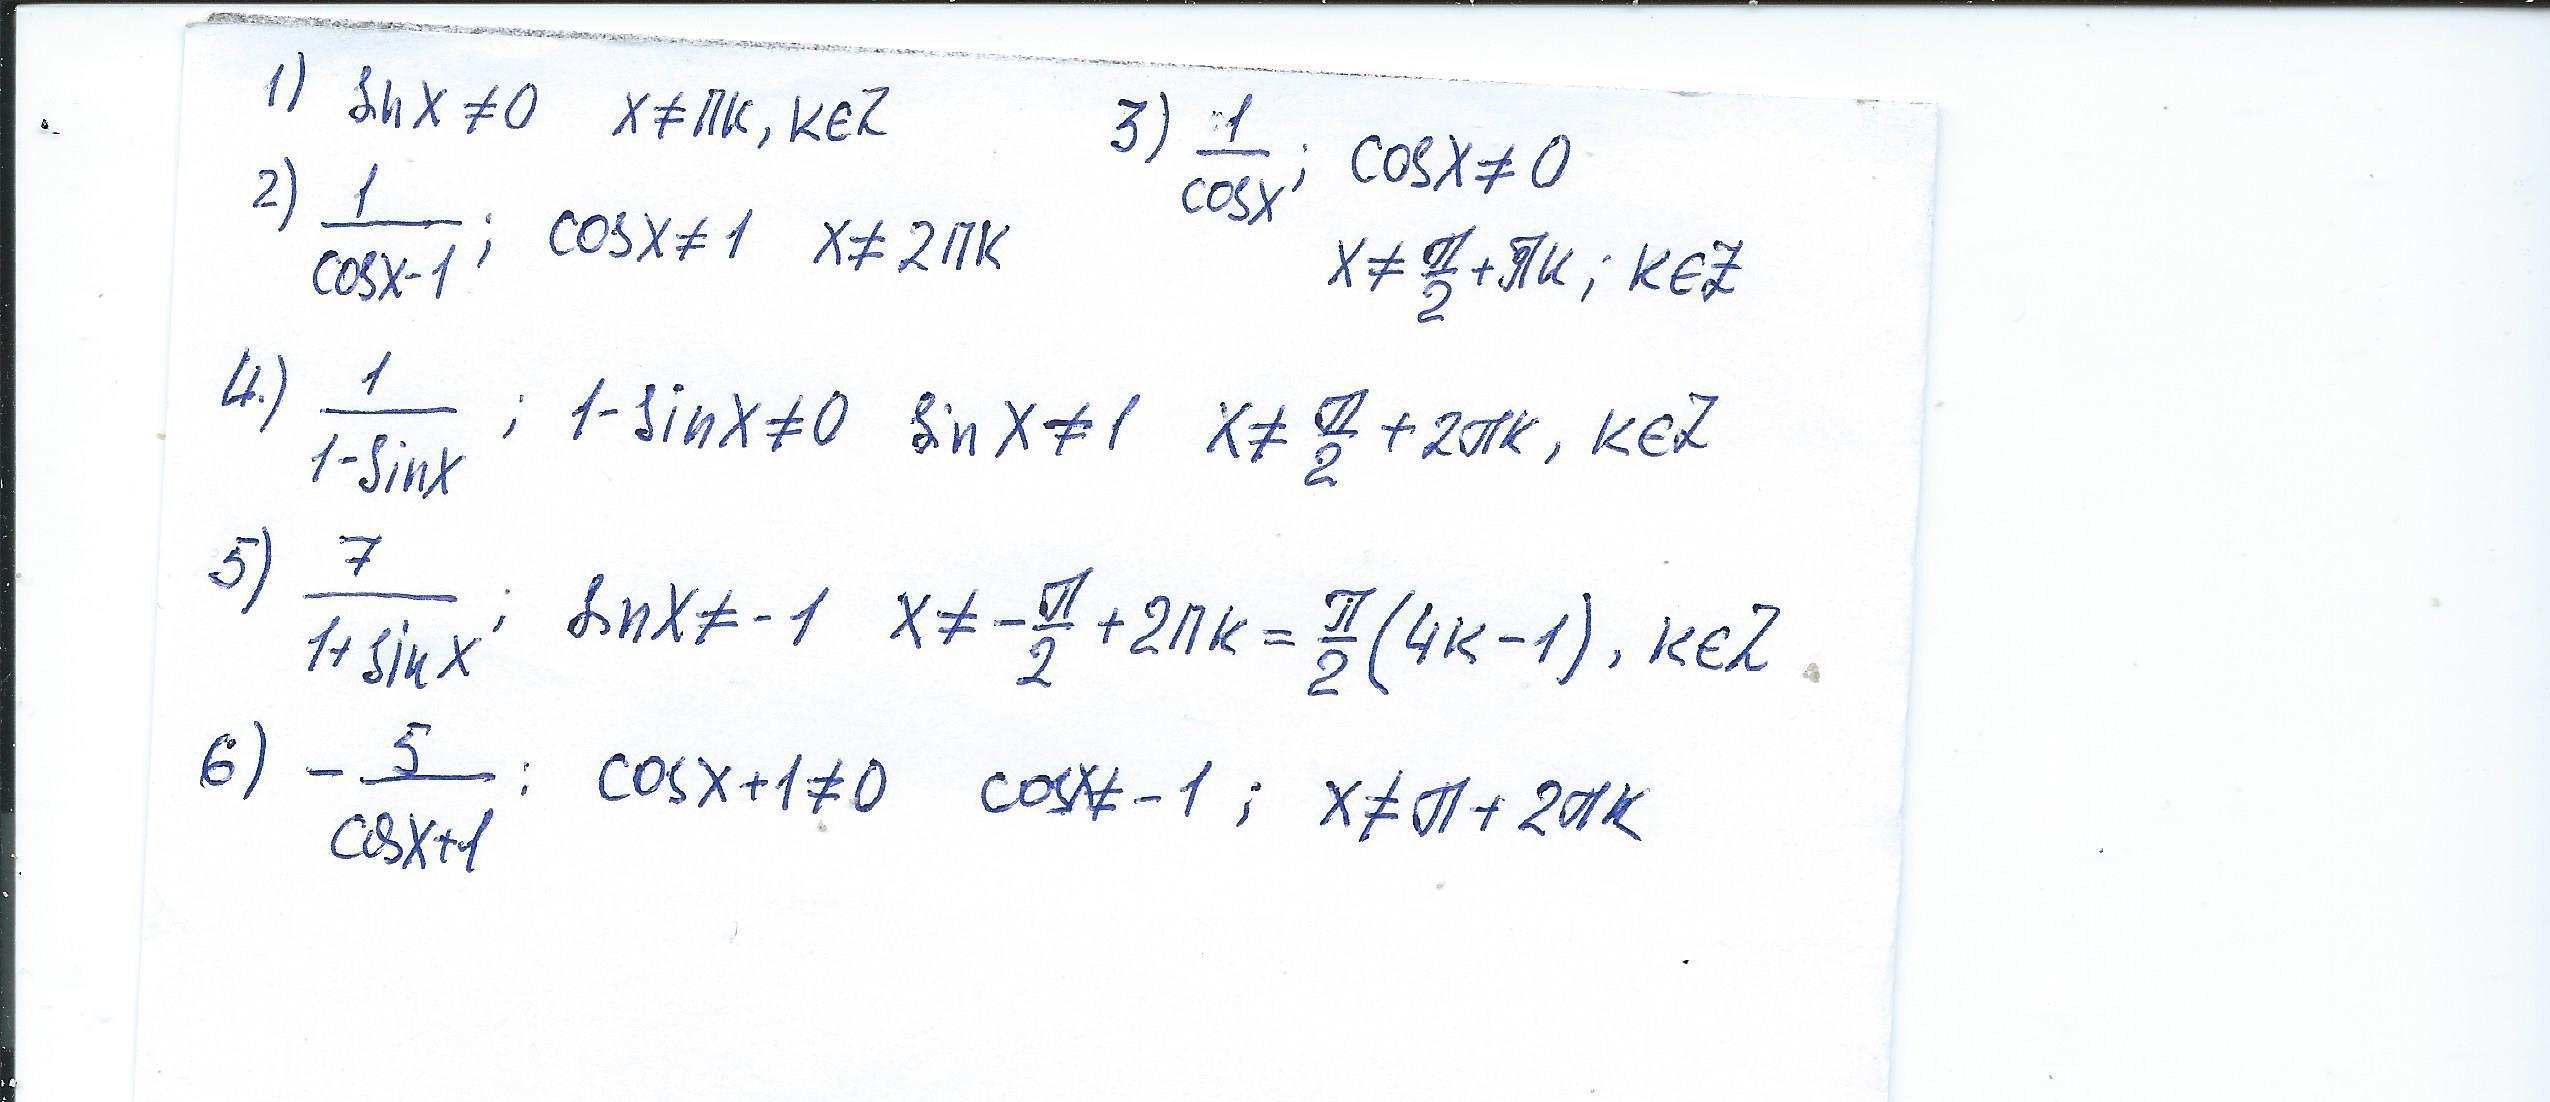 1) sinx ≠ 0   x ≠ πk, k∈Z
2) 1/(cosx-1); cosx ≠ 1   x ≠ 2πk
3) 1/cosx; cosx ≠ 0
x ≠ π/2 + πk; k∈Z
4.) 1/(1-sinx); 1-sinx ≠ 0   sinx ≠ 1   x ≠ π/2 + 2πk, k∈Z
5) 7/(1+sinx); sinx ≠ -1   x ≠ -π/2 + 2πk = π/2(4k-1), k∈Z
6) -5/(cosx+1); cosx+1 ≠ 0   cosx ≠ -1; x ≠ π + 2πk